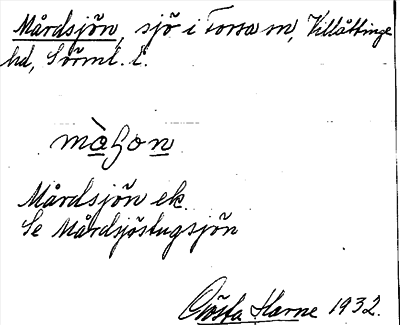 Mårdsjön, sjö i Torsa sn, Villåttinge
hd, Sörml. l.
Mårdsjön ek.
Se Mårdsjöstugsjön
Gösta Harne 1932.